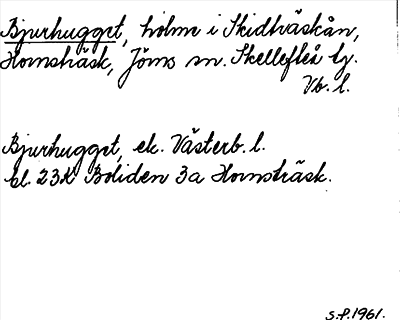 Bjurhugget, holme i Skidträskån,
Hornsträsk, Jörns sn. Skellefteå ty.
Vb. l.
Bjurhugget, ek. Västerb. l.
bl. 23K Boliden 3a Hornsträsk.
S.P.1961.